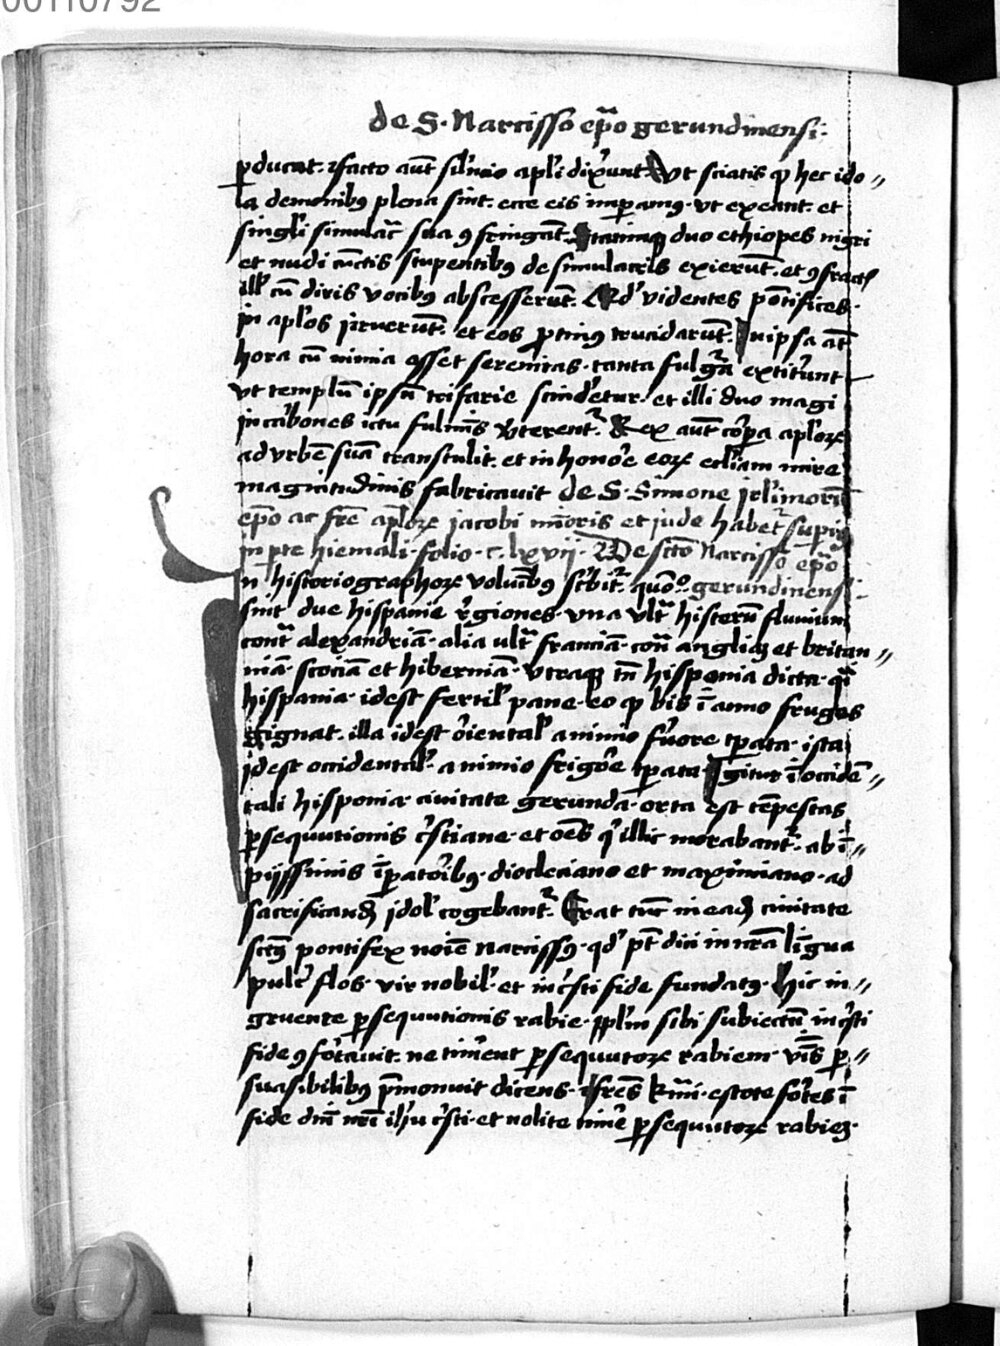 00110792
de S. Narcisso ep̄o gerundinensi:
ꝑducat. ⁊ facto aūt silīcio apl̄i dix̄unt. Vt sciatis ꝙ hec ido〃
la demonibꝰ plena sint. ecce eis imꝑamꝰ. vt exeant. et
singl̄i simulac̄ sua ꝯfringāt. Statimqꝫ duo ethiopes nigri
et nudi cūctis stupentibꝰ de simulacris exierūt. et ꝯfractꝭ
ill̄ cū diris vocibꝰ abscesserūt. Qd̄ videntes pōtifices.
in apl̄os irruerūt. et eos ꝓtinꝰ trucidarūt. In ipsa aūt
hora cū nimia eēt serenitas. tanta fulgᷓa extit̄unt
vt templū ipsū trifarie scind̄etur. et illi duo magi
in carbones ictu fulmīs ꝟterentᷣ. Rex aūt cōꝑa apl̄oꝝ
ad vrbē suā transtulit. et in honōe eoꝝ eccl̄iam mire
magnitudinis fabricavit de S. Simone irl̄imorū
ep̄o ac fr̄e apl̄oꝝ jacobi mīoris et jude habetᷣ supiꝰ
in ꝑte hiemali. folio. c. lxvij. De scto Narcisso ep̄o
n historiographoꝝ volu̅ibꝰ sc̄bitᷣ. quōo. gerundinensi:
sint due hispanie r̄giones. vna vlt̄ histerū fluvium
cont̄ alexandriā. alia ult̄ franciā. con̄ angliāꝫ et britan〃
niā. scociā et hiberniā. Vtraqꝫ tn̄ hispania dicta. qͣi
hispania. idest fertil̄ pane. eo ꝙ bis ī anno fruges
gignat. illa idest ōiental̄ a nimio fūore tꝑata. ista
idest occidental̄. a nimio frigōe tꝑata. Igitur ī occidē〃
tali hispania civitate gerundā. orta est tēpestas
ꝑsequutionis c̄stiane. et oēs qͥ illic morabantᷣ. ab ī〃
pijssimis īꝑatōibꝰ. diocleciano et maximiano. ad
sacrificandꝫ idol̄ cogebantᷣ. Erat tūc in eadꝫ civitate
sctꝰ pontifex noīe Narcissꝰ. qd̄ pt̄ dici in nrā līgua
pulc̄ flos. vir nobil̄. et in c̄sti fide fundatꝰ. Hic in〃
gruente ꝑsequutionis rabie. ppl̄m sibi subiectū in c̄sti
fide ꝯfōtavit. ne tim̄ent ꝑsequutoꝝ rabiem. v̄ıs ꝑ〃
suasibilibꝰ p̄monuit dicens. fr̄es kmi. estote fōtes ī
fide dn̄i nr̄i ih̄u c̄sti. et nolite tim̄e ꝑsequutoꝝ rabieꝫ.